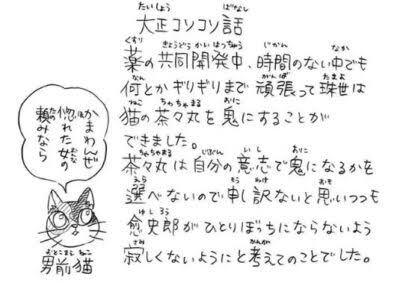 大正コソコソ話
薬の共同開発中、時間のない中でも
何とかギリギリまで頑張って珠世は
猫の茶々丸を鬼にすることが
できました。
茶々丸は自分の意志で鬼になるかを
選べないので申し訳ないと思いつつも
愈史郎がひとりぼっちにならないよう
寂しくないようにと考えてのことでした。
かまわんぜ
惚れた女の
頼みなら
男前猫